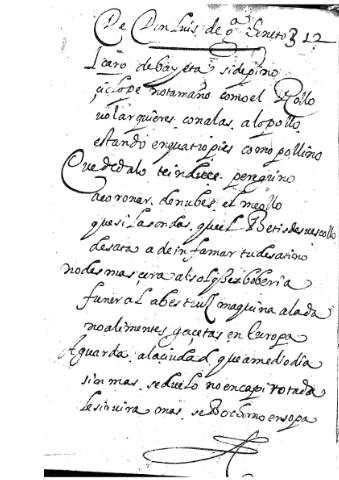 De Don Luis de gª Soneto 312
Icaro de bayeta si de pino
ciclope no tamaño como el Rollo
volar quieres con alas a lo pollo
estando en quatro pies como pollino
Que dedalo te induce peregrino
a coronar de nubes el meollo
que si las ondas que el Betis de su escollo
desata a de infamar tu desatino
no des mas çera al sol q es boberia
funeral abestruz maquina alada
no alimentes gaçetas en Europa
Aguarda a la ciudad que a medio dia
si mas se duelo no en capirotada
le sirvira mas se Bochorno en sopa